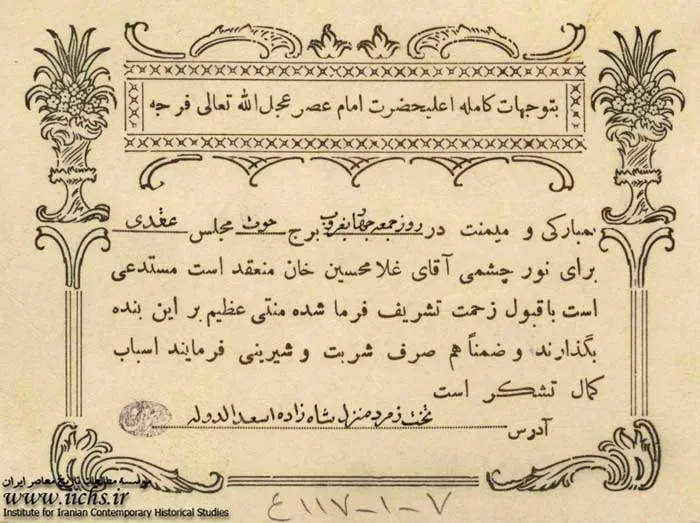 بتوجهات كامله اعليحضرت امام عصر عجل الله تعالى فرجه
بمباركى و ميمنت در روز جمعه برج حوت مجلس عقدى
براى نور چشمى آقاى غلامحسين خان منعقد است مستدعى
است با قبول زحمت تشريف فرما شده منتى عظيم بر اين بنده
بگذارند و ضمناً هم صرف شربت و شيرينى فرمايند اسباب
كمال تشكر است
آدرس تخت زمرد منزل شاه زاده اسعد الدوله
موسسه مطالعات تاريخ معاصر ايران
www.iichs.ir
Institute for Iranian Contemporary Historical Studies
۷-۱-۱۱۷ع